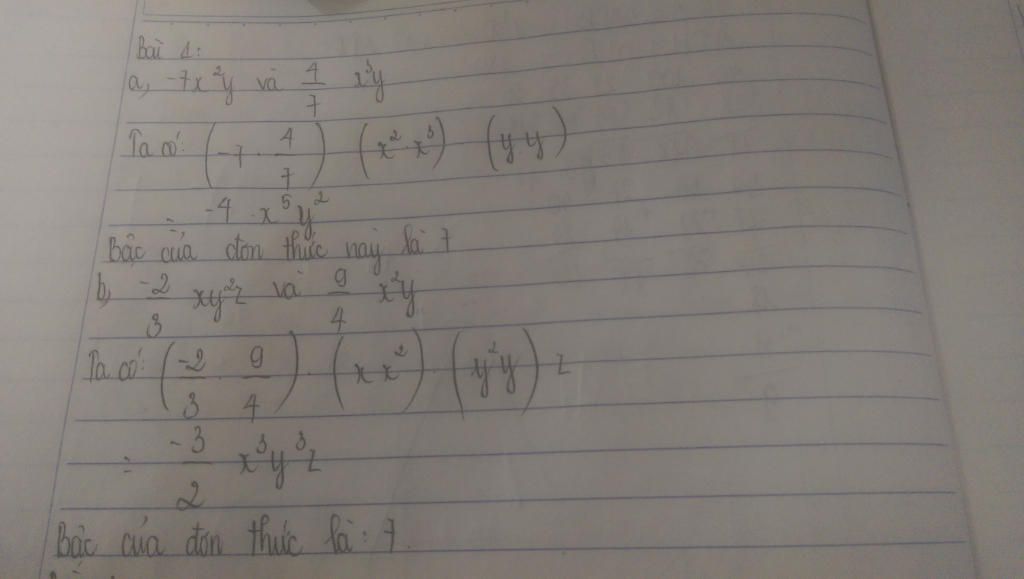 Bài 1:
a, -7x²y và 4/7 x³y
Ta có: (-7 · 4/7) (x² · x³) (y y)
= -4 · x⁵y²
Bậc của đơn thức này là 7
b, -2/3 xy²z và 9/4 x²y
Ta có: (-2/3 · 9/4) · (x x²) · (y²y) z
= -3/2 x³y³z
Bậc của đơn thức là: 7.